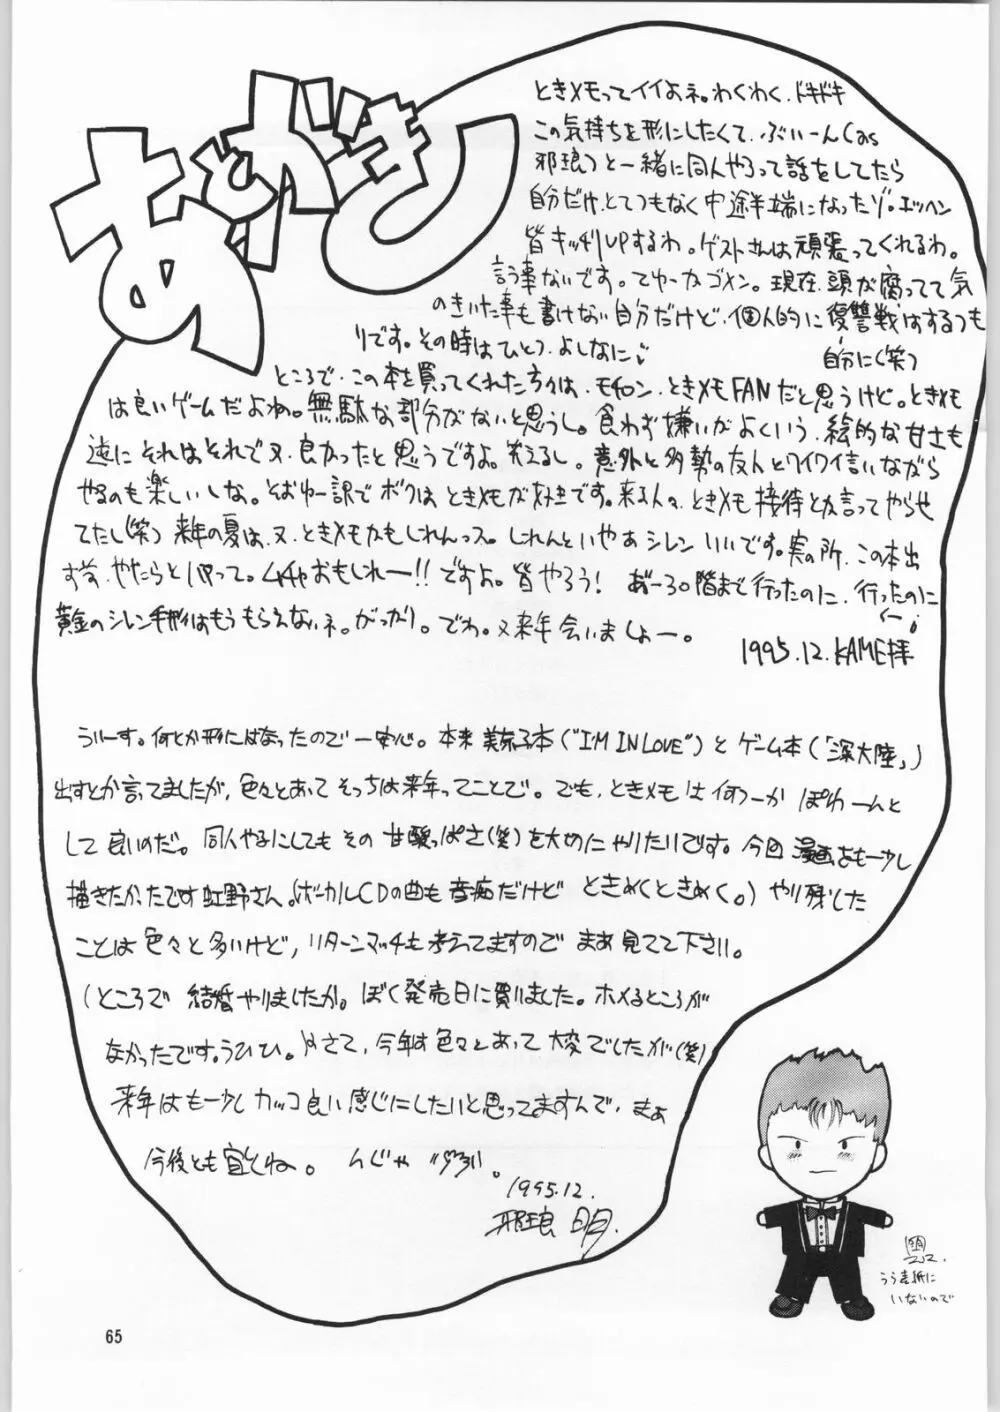 あとがき
ときメモってイイよネ。わくわく、ドキドキ
この気持ちを形にしたくて、ぶいーん(as
邪琅)と一緒に同人やろって話をしてたら
自分だけ、とてつもなく中途半端になったゾ。エッヘン
皆キッチリUPするわ。ゲストさんは頑張ってくれるわ。
言う事ないです。てゆーかゴメン。現在、頭が腐ってて気
のきいた事も書けない自分だけど、個人的に復讐戦はするつも
自分に(笑)
りです。その時はひとつ、よしなに
ところで、この本を買ってくれた方々は、モチロン、ときメモFANだと思うけど。ときメモ
は良いゲームだよね。無駄な部分がないと思うし。食わず嫌いがよくいう、絵的な甘さも
逆にそれはそれで又、良かったと思うですよ。笑えるし。意外と多勢の友人とワイワイ言いながら
やるのも楽しいしな。そおゆー訳でボクはときメモが好きです。来る人々、ときメモ接待とか言ってやらせ
てたし(笑) 来年の夏は、又、ときメモかもしれんっス。しれんといやあシレンいいです。実の所、この本出
す前、やたらとハマって。ムチャおもしれー!!ですよ。皆やろう! あ゛ーろ。階まで行ったのに、行ったのに
黄金のシレン手形はもうもらえないネ。がっかり。でわ。又来年会いましょー。
1995.12.KAME拝
うぃーす。何とか形にはなったので一安心。本来美奈子本("I'M IN LOVE")とゲーム本(「深大陸」)
出すとか言ってましたが、色々とあってそっちは来年ってことで。でも、ときメモは何つーかぽわーんと
して良いのだ。同人やるにしてもその甘酸っぱさ(笑)を大切にやりたいです。今回漫画をもー少し
描きたかったです虹野さん。(ボーカルCDの曲も音痴だけどときめくときめく。)やり残した
ことは色々と多いけど、リターンマッチも考えてますのでまあ見てて下さい。
(ところで結婚やりましたか。ぼく発売日に買いました。ホメるところが
なかったです。うひひ。)さて、今年は色々とあって大変でしたが(笑)
来年はもー少しカッコ良い感じにしたいと思ってますんで、まぁ
今後とも宜しくね。んじゃ
1995.12.
邪琅 明
うら表紙に
いないので
65